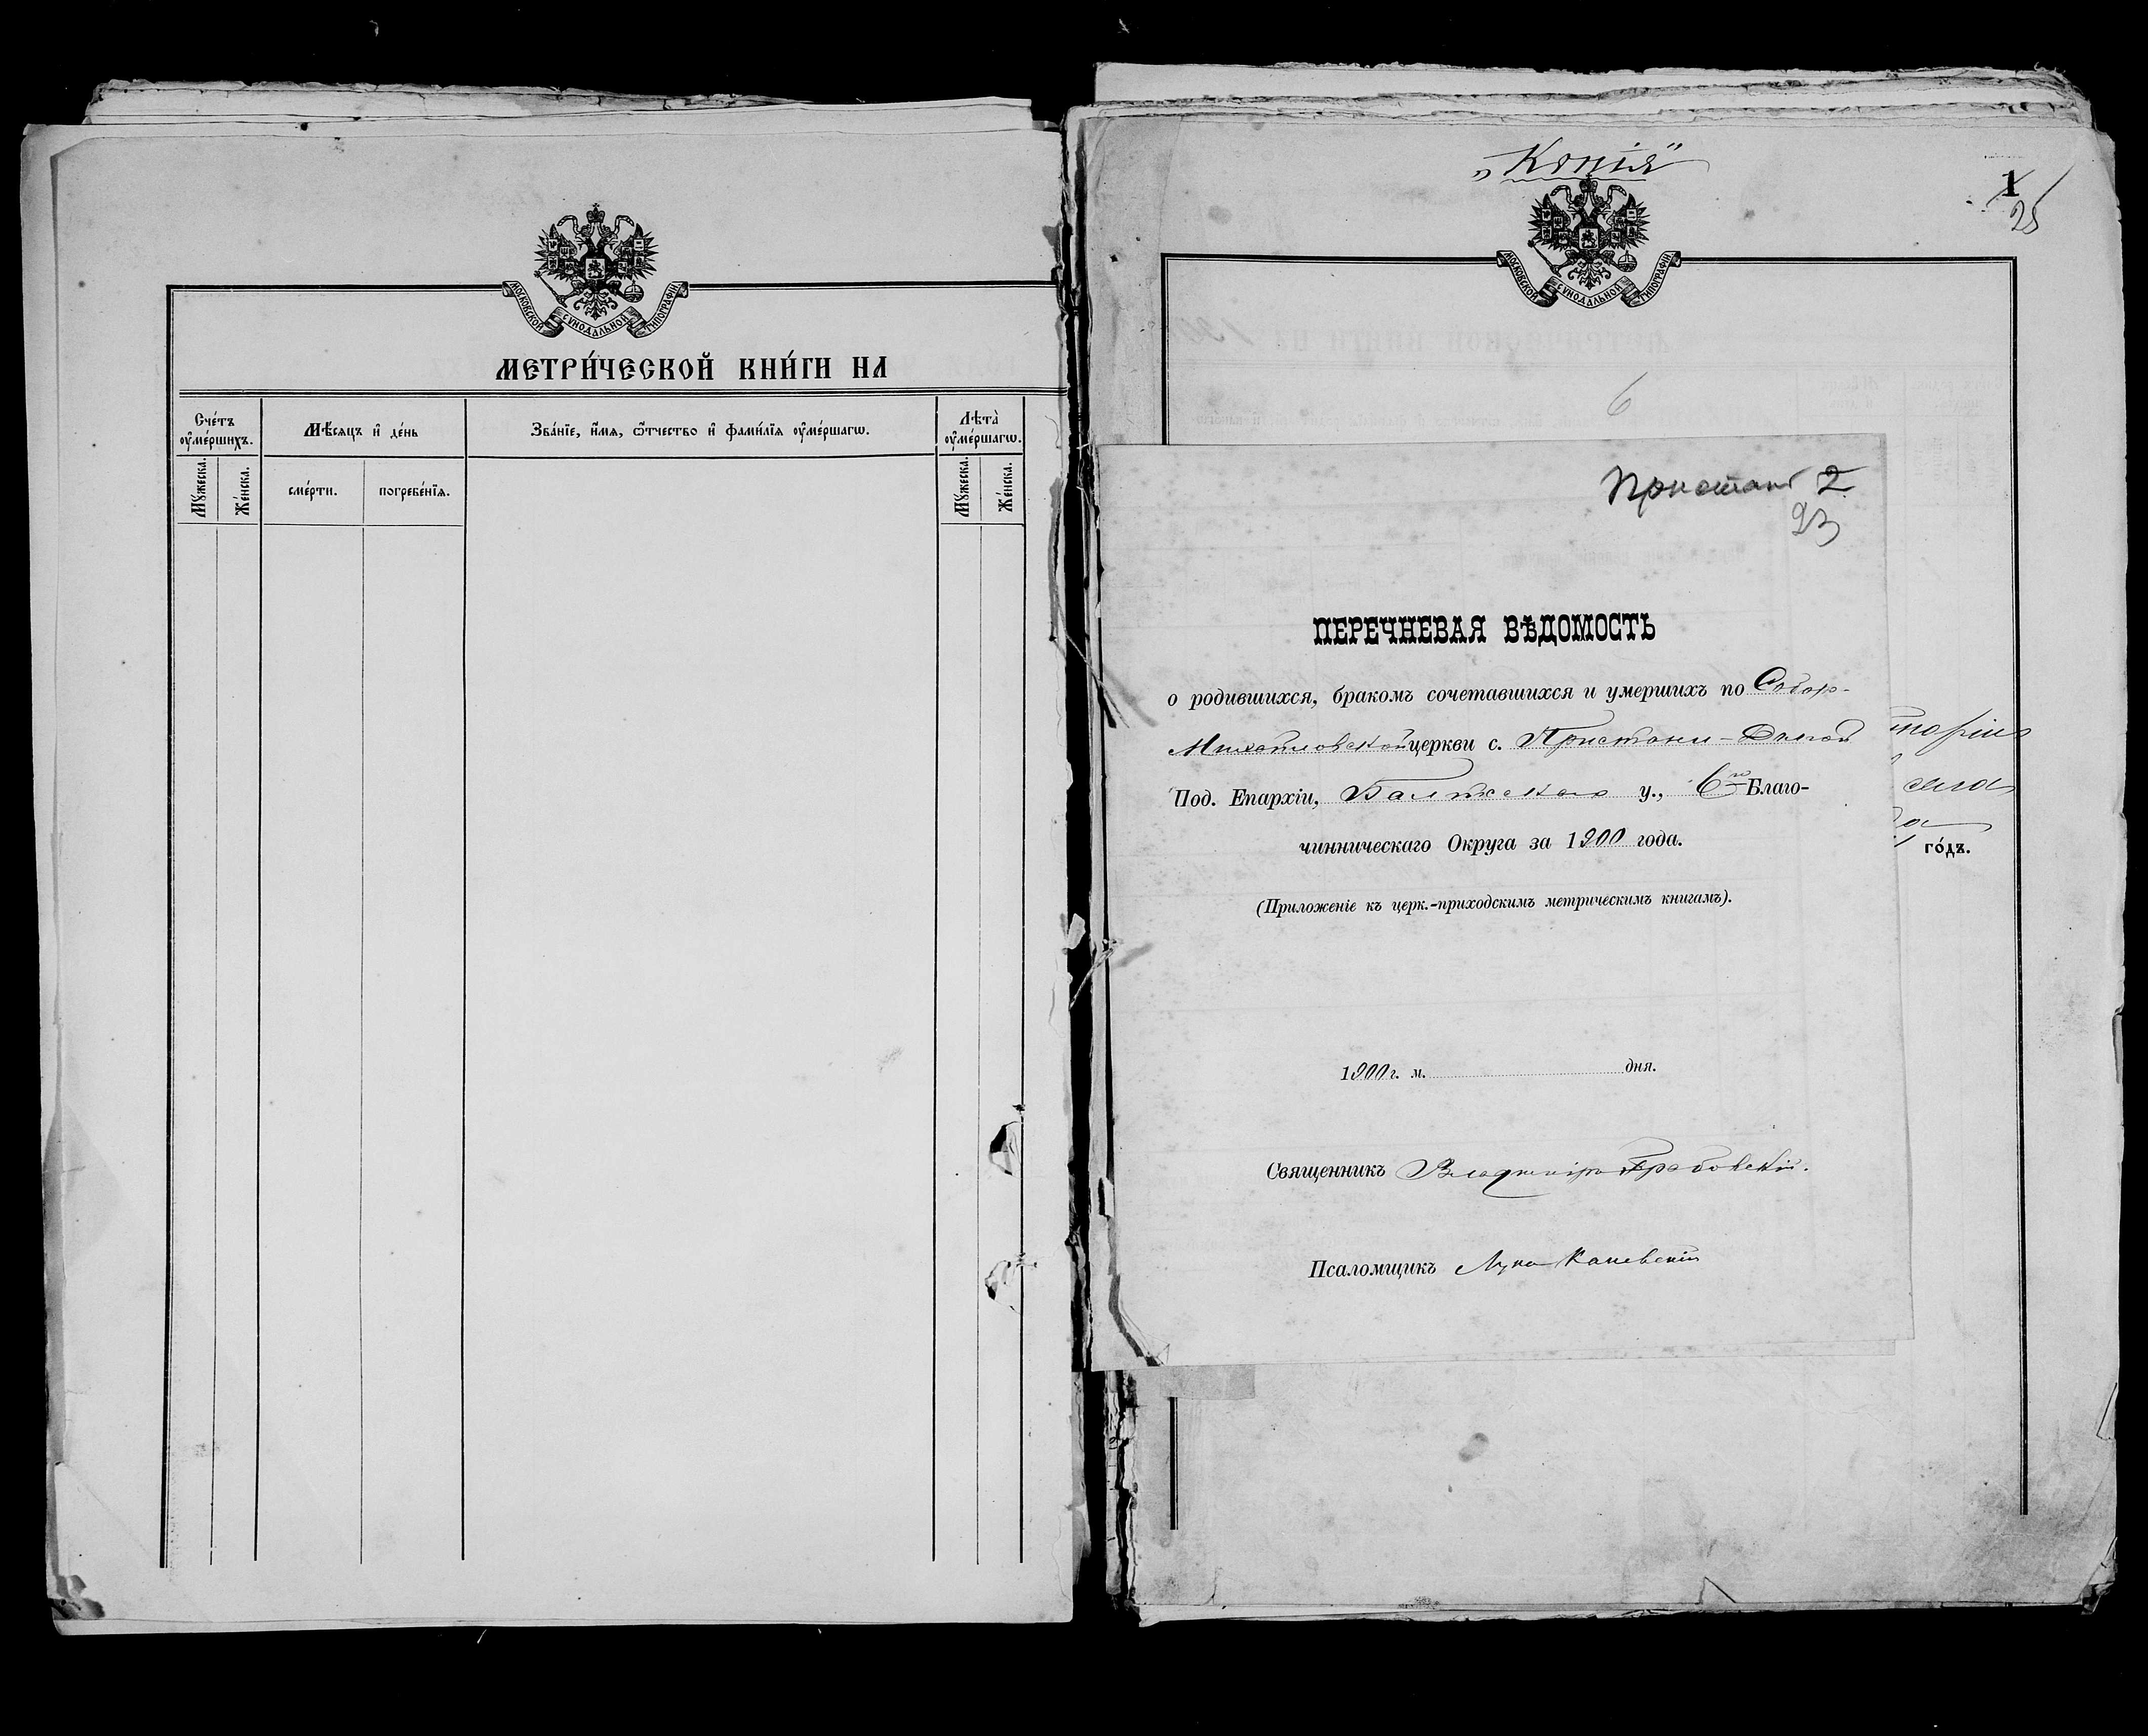 МОСКОВСКОЙ СѴНОДАЛЬНОЙ ТИПОГРАФІИ
МЕТРИ́ЧЕСКОЙ КНИ́ГИ НА
Сче́тъ оу҆ме́ршихъ.
Мѣ́сяцъ и҆ де́нь
Зва́нїе, и҆́мя, ѻ҆́тчество и҆ фами́лїя оу҆ме́ршагѡ.
Лѣта̀ оу҆ме́ршагѡ.
Мꙋ́жеска.
Же́нска.
сме́рти.
погребе́нїя.
Мꙋ́жеска.
Же́нска.
„Копія“
1
25
МОСКОВСКОЙ СѴНОДАЛЬНОЙ ТИПОГРАФІИ
6
Пристань 2
93
ПЕРЕЧНЕВАЯ ВѢДОМОСТЬ
о родившихся, бракомъ сочетавшихся и умершихъ по
Михайловской церкви с. Пристани-
Под. Епархіи, Балтскаго у., 6го Благо-
чинническаго Округа за 1900 года.
го́дъ.
(Приложеніе къ церк.-приходскимъ метрическимъ книгамъ).
1900 г. м. дня.
Священникъ Владиміръ Грабовскій.
Псаломщикъ Лука Каневскій